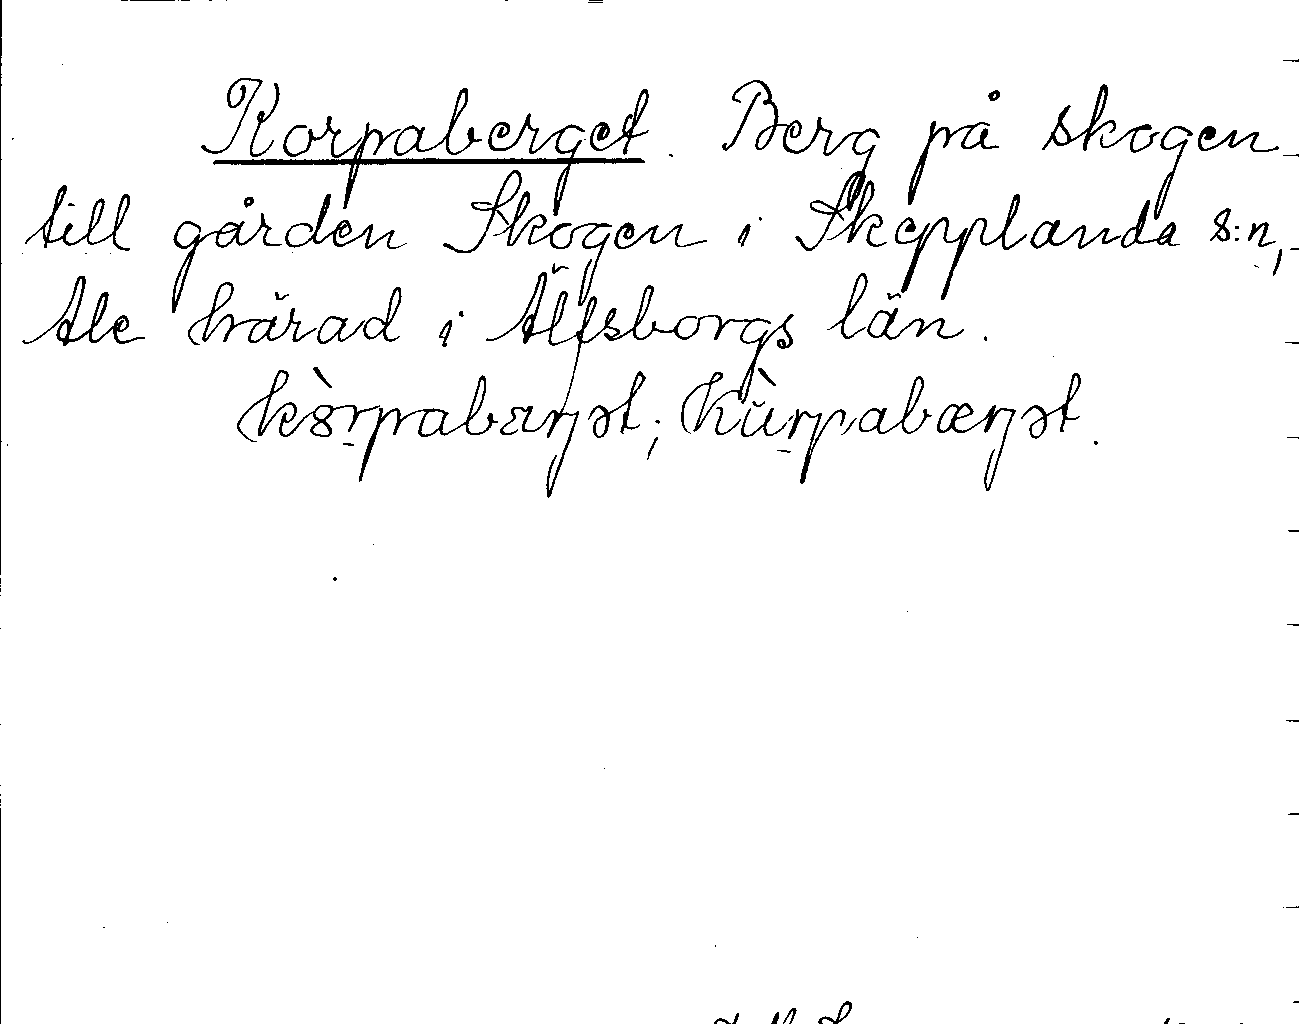 Korpaberget. Berg på skogen
till gården Skogen i Skepplanda s:n,
Ale härad i Älfsborgs län.